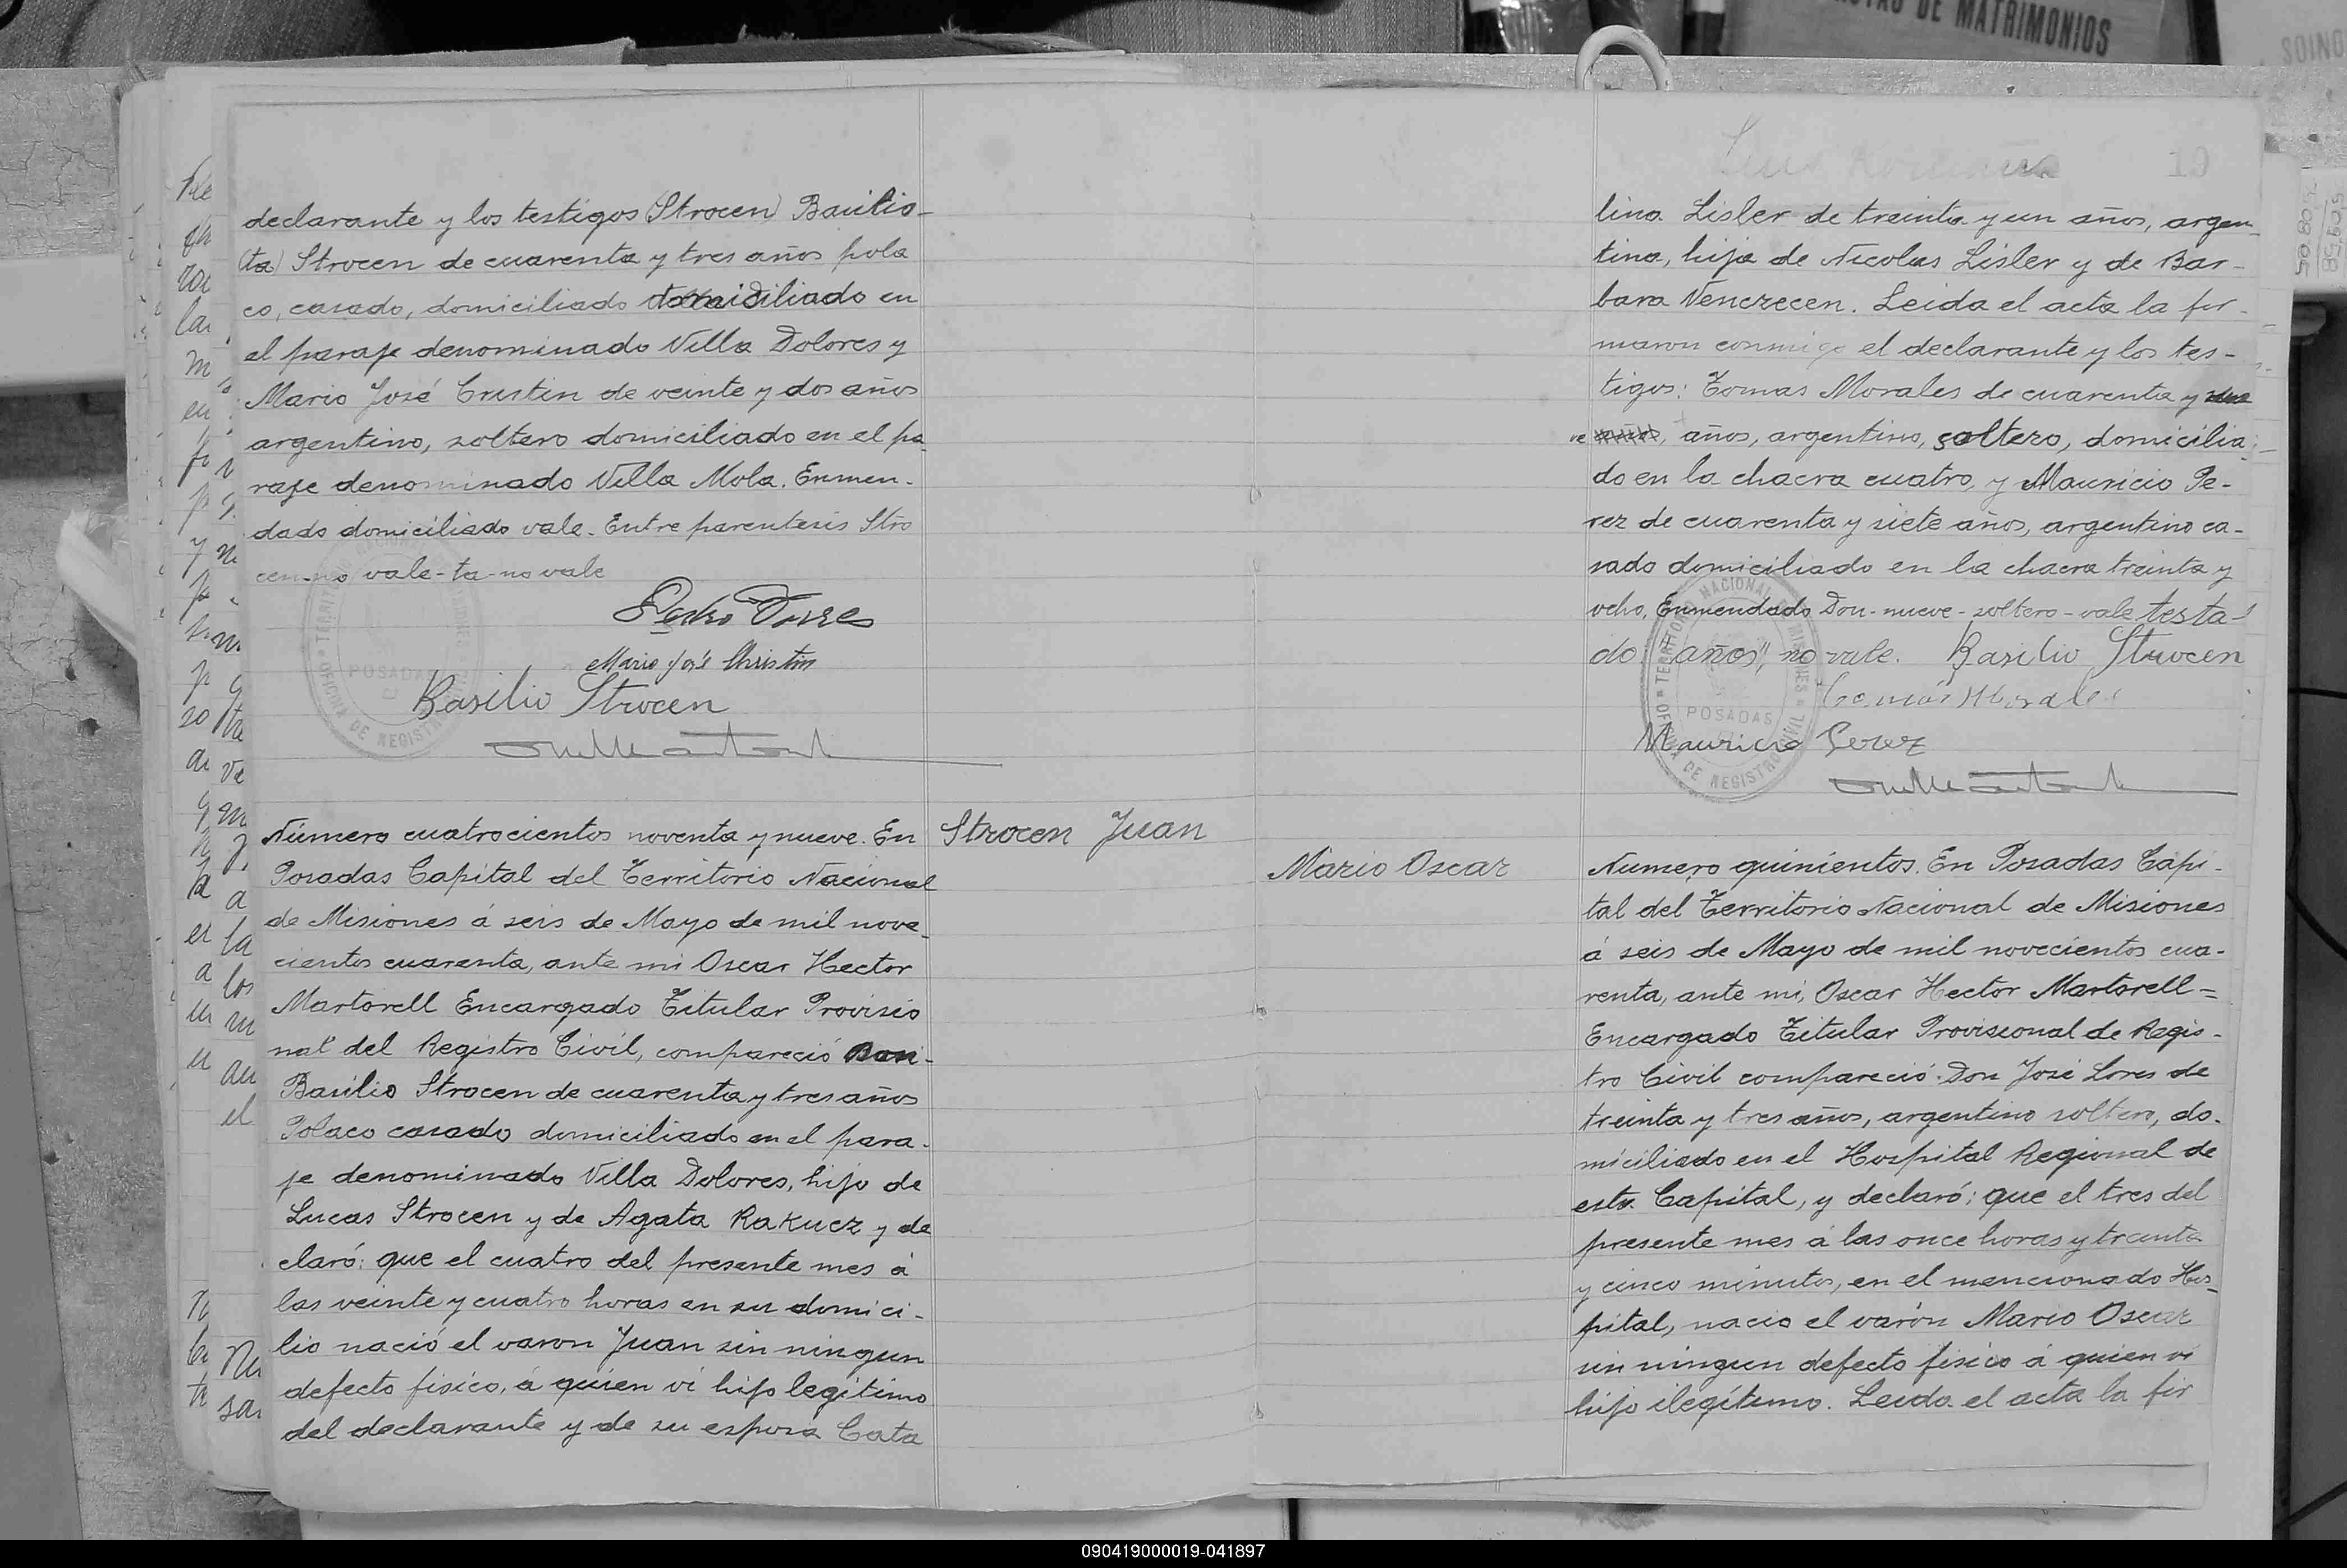 ACTAS DE MATRIMONIOS
declarante y los testigos (Strocen) Basilio-
(ta) Strocen de cuarenta y tres años pola
co, casado, domiciliado domiciliado en
el paraje denominado Villa Dolores y
Mario José Cristin de veinte y dos años
argentino, soltero domiciliado en el pa
raje denominado Villa Mola. Enmen-
dado domiciliado vale. Entre parentesis Stro
cen-no vale-ta-no vale
Pedro Torres
Mario José Christin
Basilio Strocen
POSADAS
Número cuatrocientos noventa y nueve. En
Posadas Capital del Territorio Nacional
de Misiones á seis de Mayo de mil nove-
cientos cuarenta, ante mi Oscar Hector
Martorell Encargado Titular Provisio
nal del Registro Civil, compareció Don-
Basilio Strocen de cuarenta y tres años
Polaco casado domiciliado en el para-
je denominado Villa Dolores, hijo de
Lucas Strocen y de Agata Rakucz y de
claró: que el cuatro del presente mes á
las veinte y cuatro horas en su domici-
lio nació el varon Juan sin ningun
defecto fisico, á quien vi hijo legitimo
del declarante y de su esposa Cata
Strocen Juan
19
lina Lisler de treinta y un años, argen-
tina, hija de Nicolas Lisler y de Bar-
bara Vencrecen. Leida el acta la fir-
maron conmigo el declarante y los tes-
tigos: Tomas Morales de cuarenta y nue
ve años, argentino, soltero, domicilia-
do en la chacra cuatro, y Mauricio Pe-
rez de cuarenta y siete años, argentino ca-
sado domiciliado en la chacra treinta y
ocho. Enmendado Don-nueve-soltero-vale testa-
do "años", no vale. Basilio Strocen
Tomás Morales
Mauricio Perez
TERRITORIO NACIONAL DE MISIONES
OFICINA DE REGISTRO CIVIL
POSADAS
Mario Oscar
Numero quinientos. En Posadas Capi-
tal del Territorio Nacional de Misiones
á seis de Mayo de mil novecientos cua-
renta, ante mi, Oscar Hector Martorell=
Encargado Titular Provisional de Regis-
tro Civil compareció: Don José Lores de
treinta y tres años, argentino soltero, do-
miciliado en el Hospital Regional de
esta Capital, y declaró: que el tres del
presente mes á las once horas y treinta
y cinco minutos, en el mencionado Hos-
pital, nacio el varón Mario Oscar
sin ningun defecto fisico á quien vi
hijo ilegítimo. Leida el acta la fir
090419000019-041897